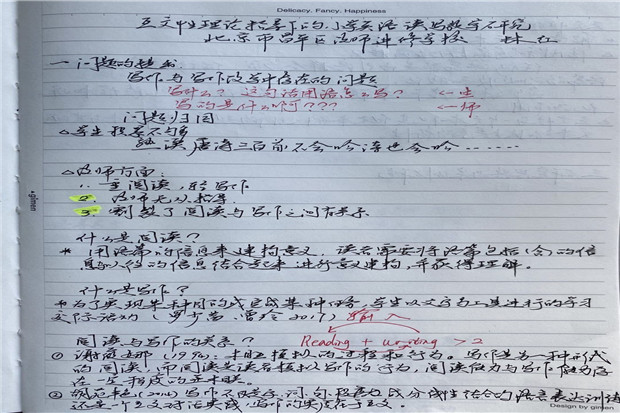 Delicacy. Fancy. Happiness
互文性理论指导下的小学英语读写教学研究
北京市昌平区教师进修学校 林
一.问题的提出:
写作与写作教学中存在的问题
写什么?这句话用语怎么写? ←生
写的是什么啊??? ←师
问题归因
△学生积累不够
熟读唐诗三百首不会吟诗也会吟……
△教师方面:
1. 重阅读,轻写作
2. 教师无从指导
3. 割裂了阅读与写作之间关系
gimen
什么是阅读?
* 用语篇的信息来建构意义,读者需要将语篇包括(含)的信
息与的信息结合起来进行意义建构,并获得理解。
什么是写作?
*为了实现某种目的或完成某种任务,学生以文字为工具进行的学习
交际活动 罗少茜、曾玲 2017) 输入
阅读与写作的关系? Reading + writing > 2
① 谢薇娜(1994):相互模拟的过程和行为。写作是另一种形式
的阅读,而阅读是读者模拟写作的行为,阅读能力与写作能力存
在一定程度的正相关。
② (2014)写作不是字、词、句、段落或成分线性结合的语言表达训练
还是一个互文对话实践,写作的实质在于互文。
Design by gimen